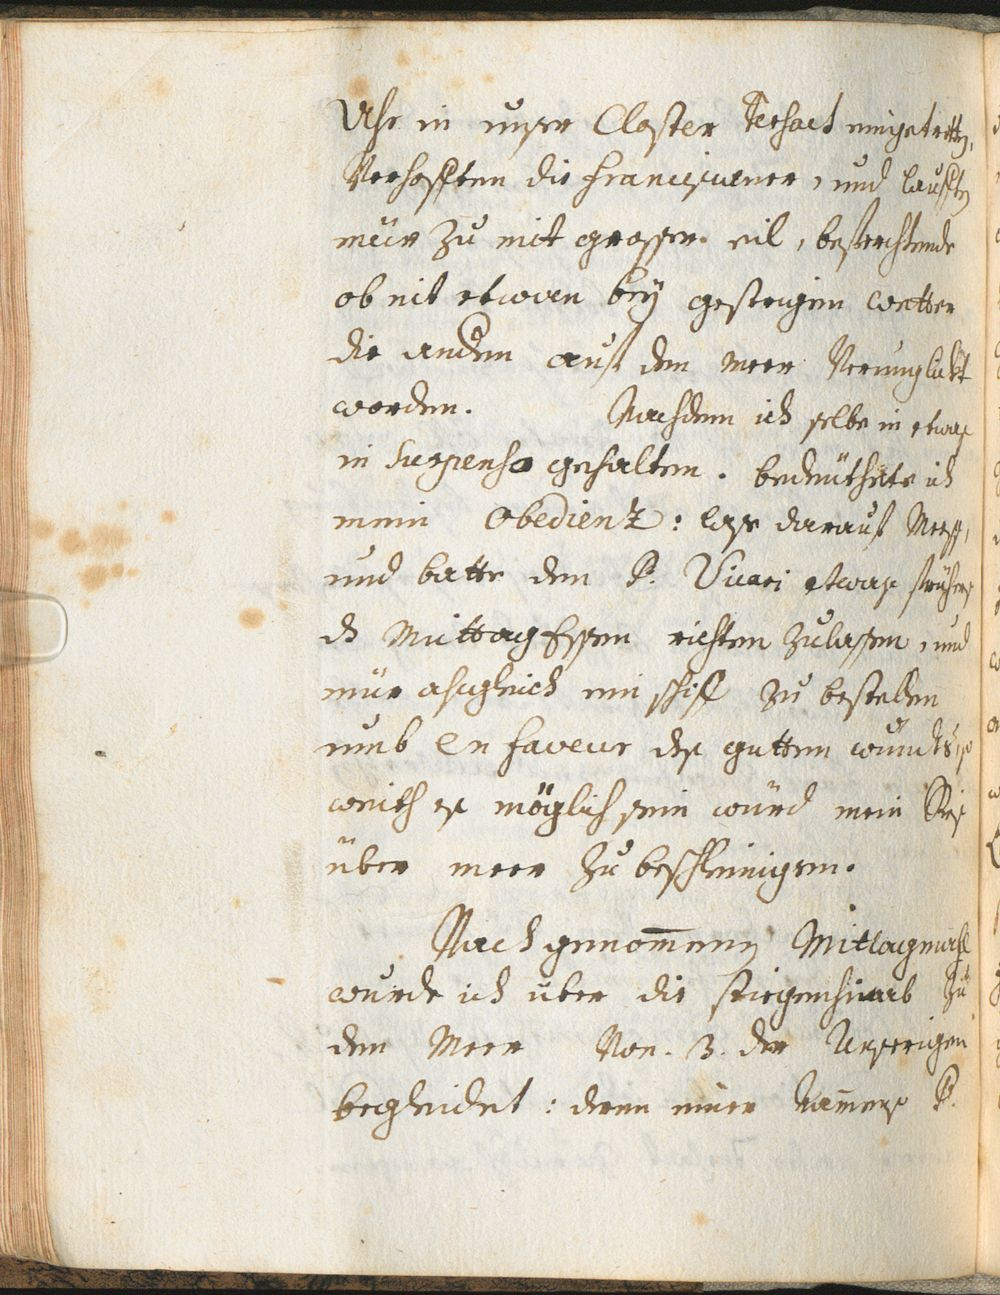 Uhr in unser Closter Tersact eingetretten,
Verhofften die Franciscaner, und laufften
mür zu mit grosser eil, besterchtende
ob nit etwan beÿ gestrigen wetter
die andern auf dem Meer Verunglükt
worden. Nachdem ich selbe in etwas
in Suspenso gehalten. bedeüthete ich
mein Obedienz: lase darauf Mess,
und batte den P. Vicari etwas früher
dz Mittag Essen richten zulassen, und
mür alsgleich ein schiff zu bestellen
umb en faveur des gutten wündts, so
weith es möglich sein würd mein Reis
über meer zu beschleinigen.
Nach genommenen Mittagmahl
wurde ich über die stiegen hinab zu
dem Meer Von 3. der Unserigen
begleidet: deren einer namens P.